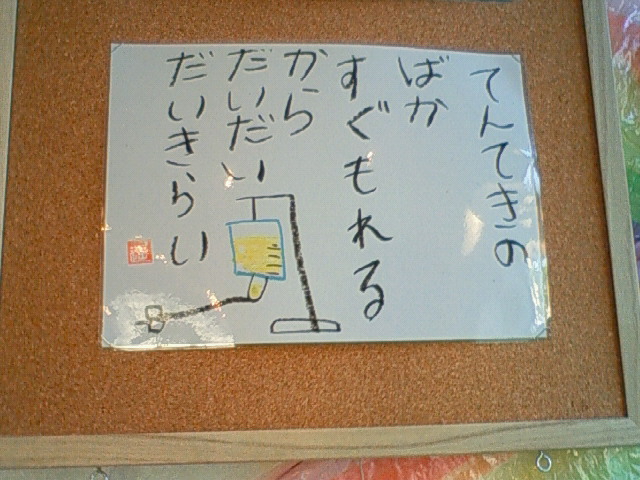 てんてきの
ばか
すぐもれる
から
だいだい
だいきらい